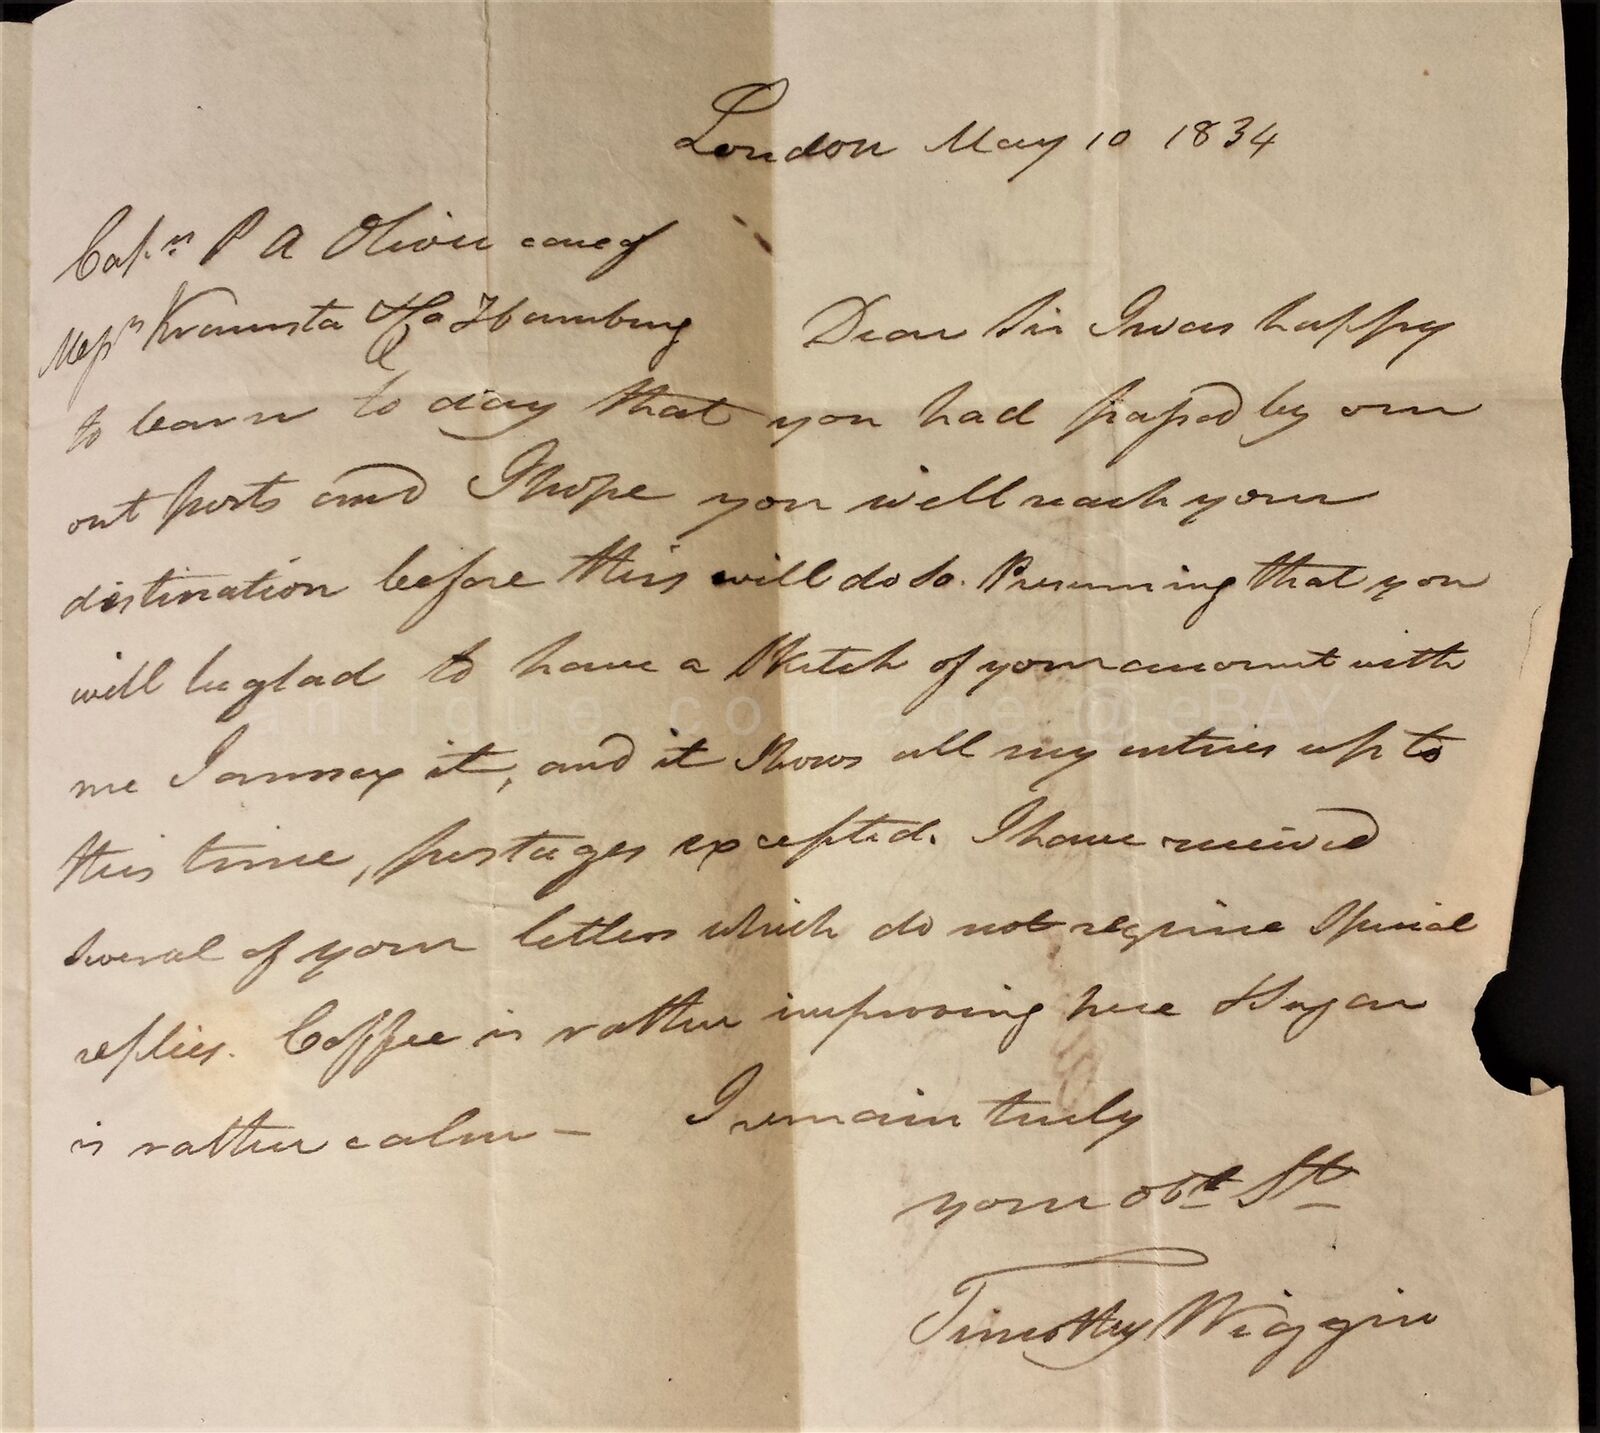 London May 10 1834
Capn P A Oliver care of
Messrs & Co Hamburg Dear Sir I was happy
to learn to day that you had passed by our
out ports and I hope you will reach your
destination before this will do so. Presuming that you
will be glad to have a Sketch of your account with
antique collage @ eBAY
me I annex it, and it Shows all my entries up to
this time, postages excepted. I have received
Several of your letters which do not require Special
replies. Coffee is rather improving here & Sugar
is rather calm – I remain truly
your obt St
Timothy Wiggin